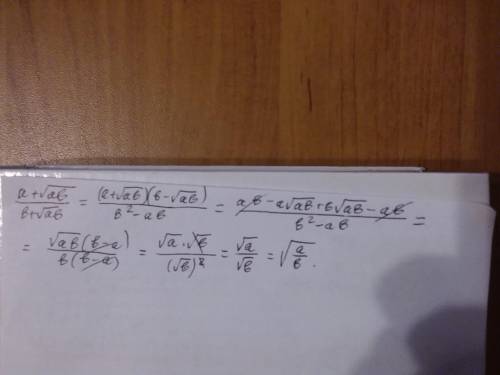 (a+√ab)/(b+√ab) = ((a+√ab)(b-√ab))/(b²-ab) = (ab-a√ab+b√ab-ab)/(b²-ab) =
= (√ab(b-a))/(b(b-a)) = (√a·√b)/((√b)²) = √a/√b = √(a/b).